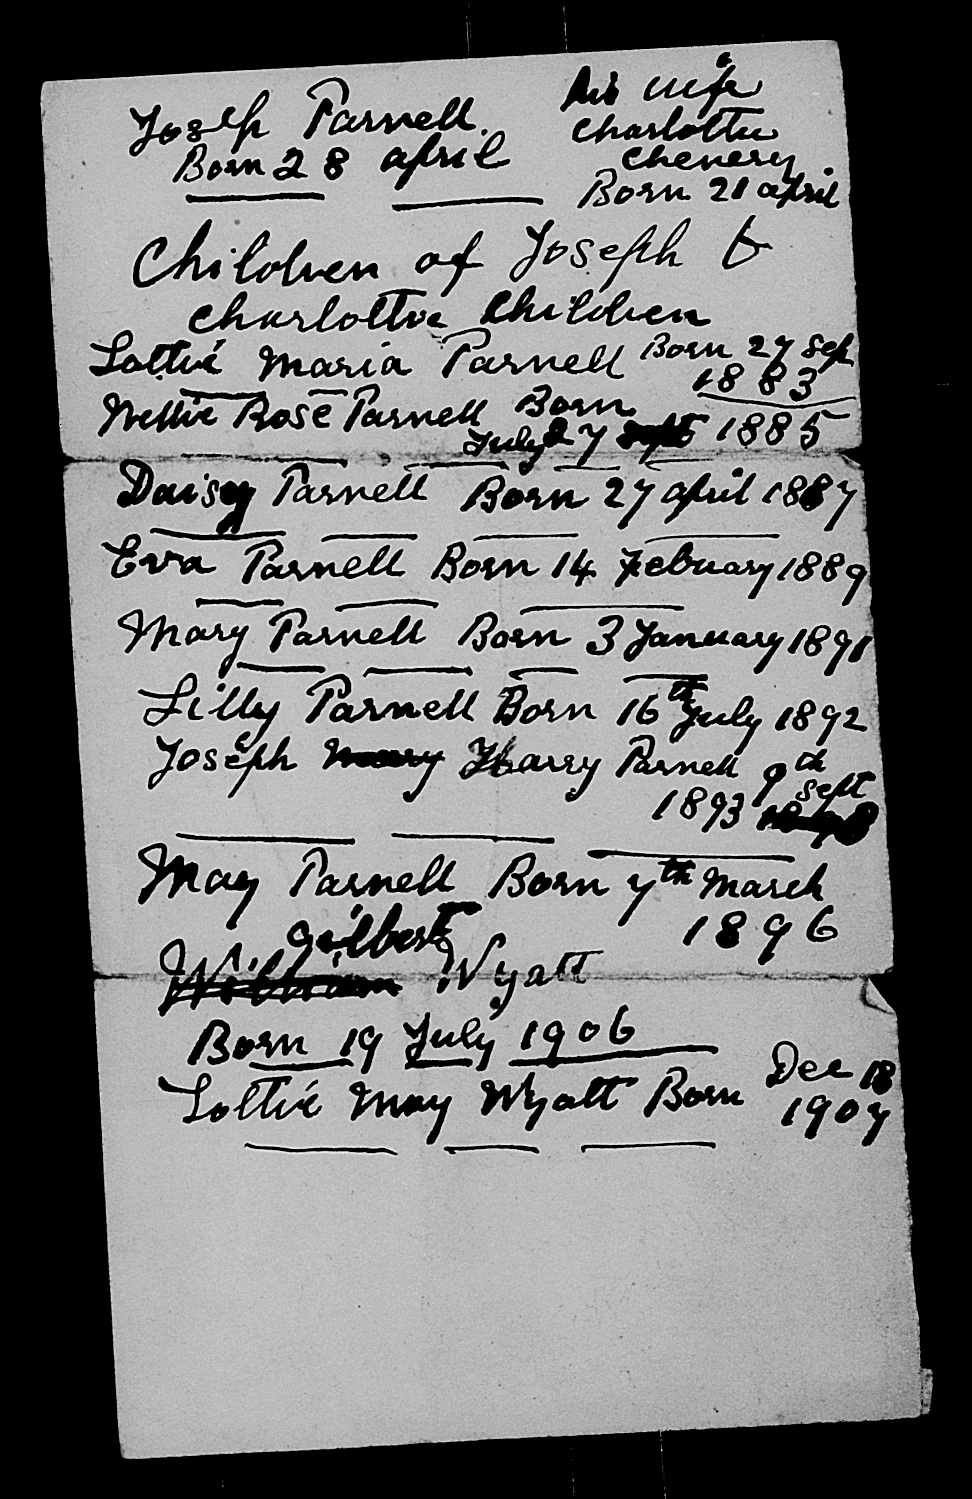 Joseph Parnell.
Born 28 april
his wife
Charlottie
Chenery
Born 21 april
Children of Joseph &
Charlottie Children
Lottie Maria Parnell Born 27 Sep
1883
Nellie Rose Parnell Born
July 27 Sept 1885
Daisey Parnell Born 27 april 1887
Eva Parnell Born 14 Febuary 1889
Mary Parnell Born 3 January 1891
Lilly Parnell Born 16th July 1892
Joseph Mary Harry Parnell 9th
Sept
1893
May Parnell Born 7th March
1896
Gilbert
William Wyatt
Born 19 July 1906
Lottie May Wyatt Born Dec 18
1907